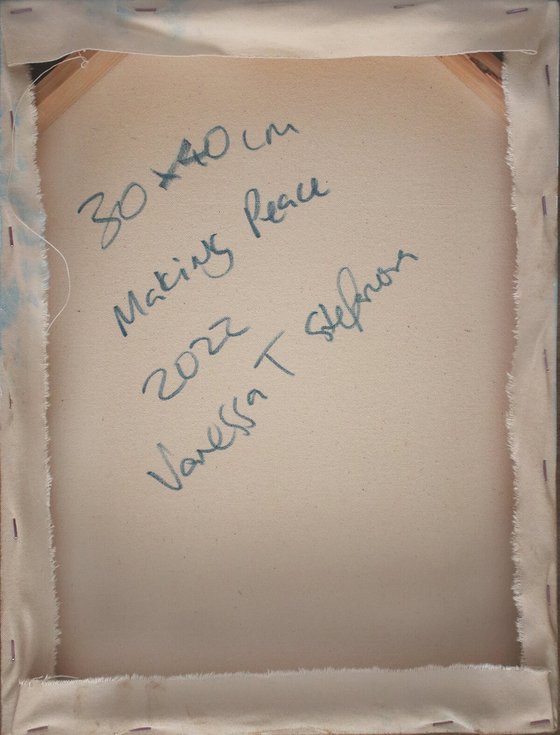 30x40cm
Making Peace
2022
Vanessa T Stefanova